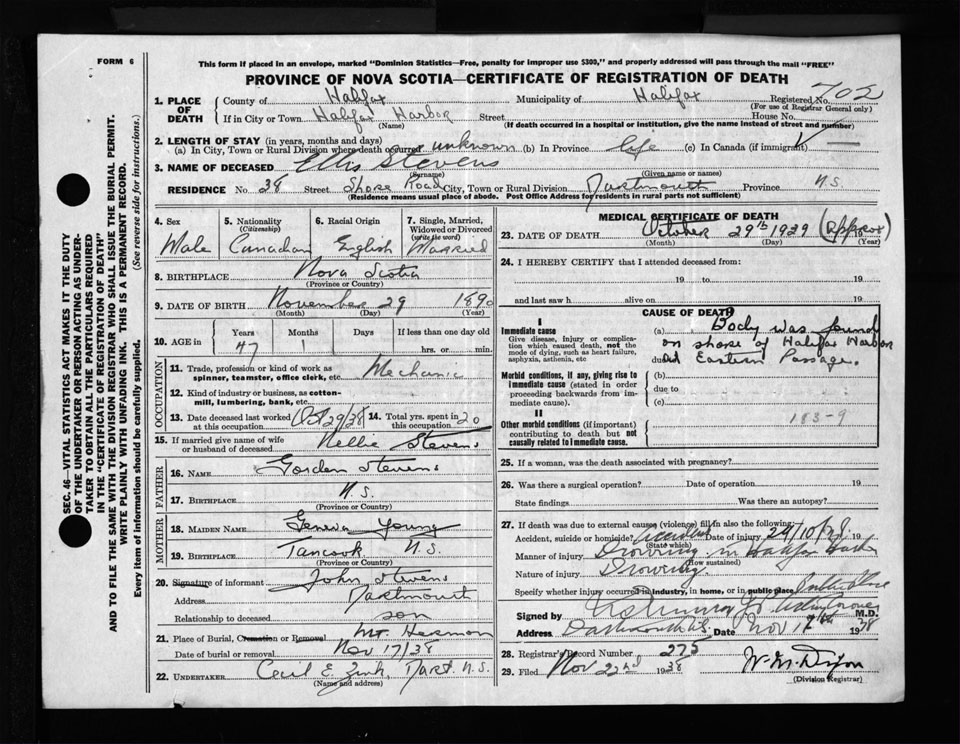 FORM 6
This form if placed in an envelope, marked "Dominion Statistics—Free, penalty for improper use $300," and properly addressed will pass through the mail "FREE"
PROVINCE OF NOVA SCOTIA—CERTIFICATE OF REGISTRATION OF DEATH
1. PLACE OF DEATH
County of Halifax Municipality of Halifax Registered No. 702
(For use of Registrar General only)
If in City or Town Halifax Harbor Street House No.
(Name) (If death occurred in a hospital or institution, give the name instead of street and number)
2. LENGTH OF STAY (in years, months and days)
(a) In City, Town or Rural Division where death occurred unknown (b) In Province life (c) In Canada (if immigrant)
3. NAME OF DECEASED Ellis Stevens
(Surname) (Given name or names)
RESIDENCE No. 38 Street Shore Road City, Town or Rural Division Dartmouth Province N.S.
(Residence means usual place of abode. Post Office Address for residents in rural parts not sufficient)
4. Sex Male
5. Nationality (Citizenship) Canadian
6. Racial Origin English
7. Single, Married, Widowed or Divorced (write the word) Married
8. BIRTHPLACE Nova Scotia
(Province or Country)
9. DATE OF BIRTH November 29 1890
(Month) (Day) (Year)
10. AGE in Years Months Days If less than one day old
47 1 hrs. or min.
OCCUPATION
11. Trade, profession or kind of work as spinner, teamster, office clerk, etc. Mechanic
12. Kind of industry or business, as cotton-mill, lumbering, bank, etc.
13. Date deceased last worked at this occupation Oct 29/38
14. Total yrs. spent in this occupation 20
15. If married give name of wife or husband of deceased Nellie Stevens
FATHER
16. NAME Gordon Stevens
17. BIRTHPLACE N.S.
(Province or Country)
MOTHER
18. MAIDEN NAME Geneva Young
19. BIRTHPLACE Tancook N.S.
(Province or Country)
20. Signature of informant John Stevens
Address Dartmouth
Relationship to deceased son
21. Place of Burial, Cremation or Removal Mt. Hermon
Date of burial or removal Nov 17/38
22. UNDERTAKER Cecil E. Zink, Dart N.S.
(Name and address)
MEDICAL CERTIFICATE OF DEATH
23. DATE OF DEATH October 29th 1939 (Approx) 19
(Month) (Day) (Year)
24. I HEREBY CERTIFY that I attended deceased from:
19 to 19
and last saw h alive on 19
CAUSE OF DEATH
I
Immediate cause
Give disease, injury or complication which caused death, not the mode of dying, such as heart failure, asphyxia, asthenia, etc
(a) Body was found
on shore of Halifax Harbor
due to Eastern Passage.
Morbid conditions, if any, giving rise to immediate cause (stated in order proceeding backwards from immediate cause).
(b)
due to
(c)
II
Other morbid conditions (if important) contributing to death but not causally related to immediate cause.
183-9
25. If a woman, was the death associated with pregnancy?
26. Was there a surgical operation? Date of operation 19
State findings Was there an autopsy?
27. If death was due to external causes (violence) fill in also the following:
Accident, suicide or homicide? Accident Date of injury 29/10/38.
(State which)
Manner of injury Drowning in Halifax Harbor
(How sustained)
Nature of injury Drowning.
Specify whether injury occurred in industry, in home, or in public place Public Place
Signed by M.D.
Address Dartmouth N.S. Date Nov 17th 1938
28. Registrar's Record Number 275
29. Filed Nov 22nd 1938 W. M. Dixon
(Division Registrar)
SEC. 46—VITAL STATISTICS ACT MAKES IT THE DUTY
OF THE UNDERTAKER OR PERSON ACTING AS UNDER-
TAKER TO OBTAIN ALL THE PARTICULARS REQUIRED
IN THE "CERTIFICATE OF REGISTRATION OF DEATH"
AND TO FILE THE SAME WITH THE DIVISION REGISTRAR WHO SHALL ISSUE THE BURIAL PERMIT.
WRITE PLAINLY WITH UNFADING INK. THIS IS A PERMANENT RECORD.
Every item of information should be carefully supplied. (See reverse side for instructions.)